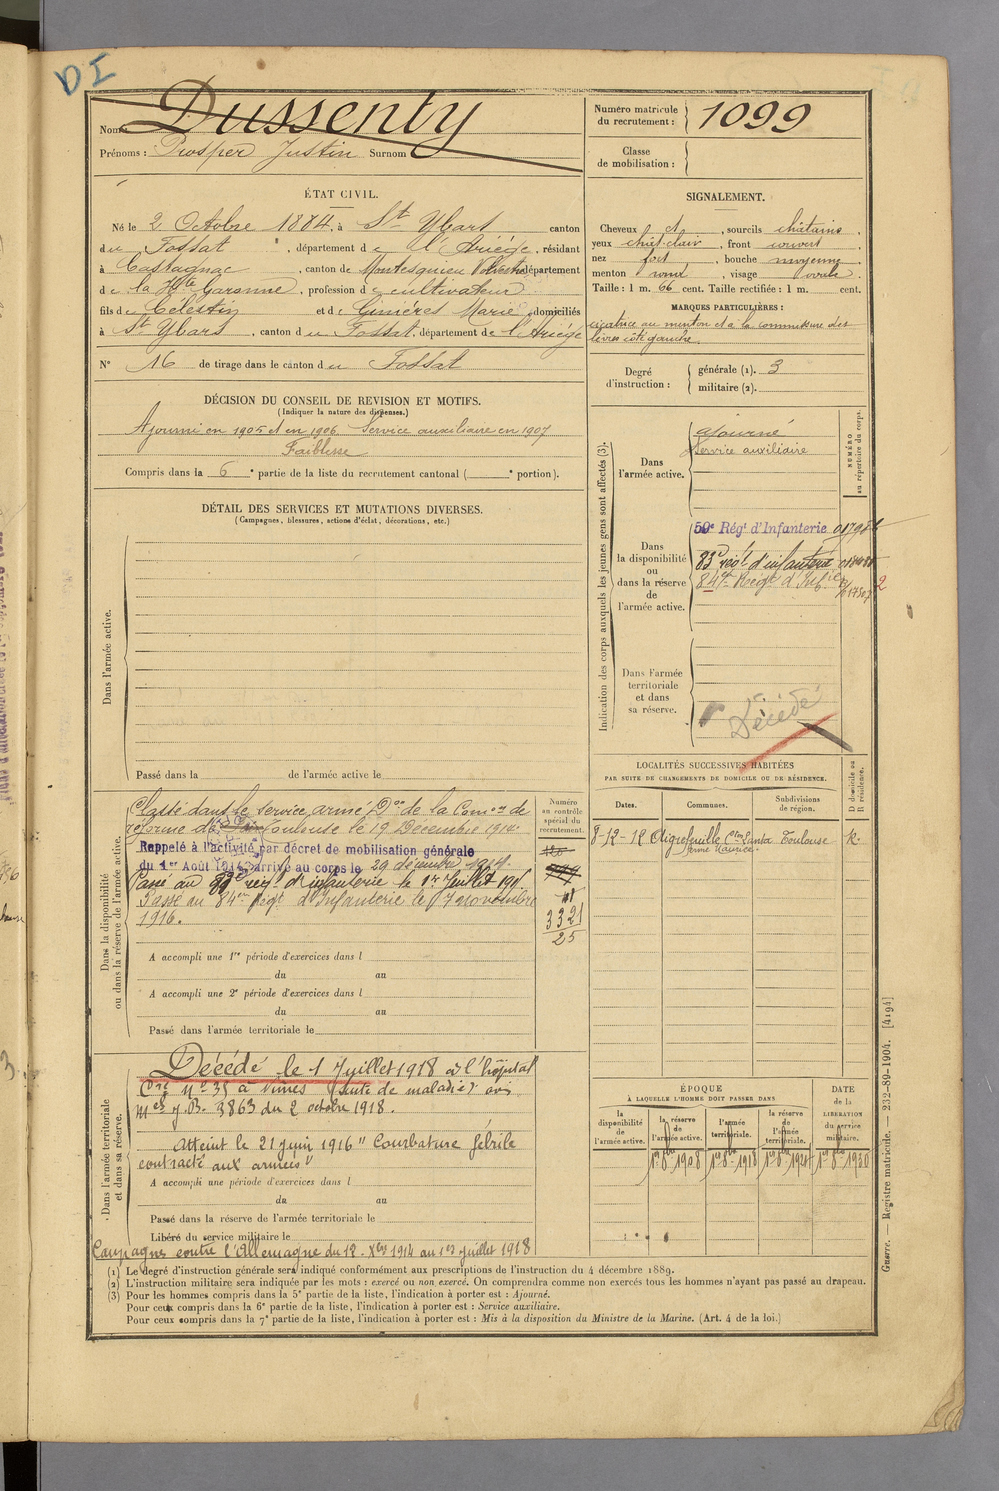 D I
Nom: Dussenty
Prénoms: Prosper Justin Surnom
Numéro matricule du recrutement: 1099
Classe de mobilisation:
ÉTAT CIVIL.
Né le 2 Octobre 1884, à St Ybars canton
du Fossat, département de l'Ariège, résidant
à Castagnac, canton de Montesquieu Volvestre département
de la Hte Garonne, profession de cultivateur
fils de Célestin et de Gimères Marie domiciliés
à St Ybars, canton du Fossat, département de l'Ariège
N° 16 de tirage dans le canton du Fossat
SIGNALEMENT.
Cheveux et, sourcils châtains.
yeux chât-clair, front couvert
nez fort, bouche moyenne
menton rond, visage ovale.
Taille: 1 m. 66 cent. Taille rectifiée: 1 m. cent.
MARQUES PARTICULIÈRES:
cicatrice au menton et à la commissure des
lèvres côté gauche.
Degré d'instruction: générale (1). 3
militaire (2).
DÉCISION DU CONSEIL DE REVISION ET MOTIFS.
(Indiquer la nature des dispenses.)
Ajourné en 1905 et en 1906 Service auxiliaire en 1907
Faiblesse
Compris dans la 6e partie de la liste du recrutement cantonal ( e portion).
DÉTAIL DES SERVICES ET MUTATIONS DIVERSES.
(Campagnes, blessures, actions d'éclat, décorations, etc.)
Dans l'armée active.
Passé dans la de l'armée active le
Indication des corps auxquels les jeunes gens sont affectés (3).
NUMÉRO au répertoire du corps.
Dans l'armée active.
ajourné
Service auxiliaire
Dans la disponibilité ou dans la réserve de l'armée active.
59e Régt d'Infanterie
83e régt d'infanterie
84e Régt d'Infie 17507 2
Dans l'armée territoriale et dans sa réserve.
Décédé
LOCALITÉS SUCCESSIVES HABITÉES
PAR SUITE DE CHANGEMENTS DE DOMICILE OU DE RÉSIDENCE.
Dates. Communes. Subdivisions de région. D domicile ou R résidence.
8-12-12 Aigrefeuille Con Lanta Toulouse R.
ferme Maurice
Dans la disponibilité ou dans la réserve de l'armée active.
Numéro au contrôle spécial du recrutement.
Classé dans le service armé Don de la Comon de
réforme de Toulouse le 19 Décembre 1914.
Rappelé à l'activité par décret de mobilisation générale
du 1er Août 1914, arrivé au corps le 29 décembre 1914.
Passé au 83e régt d'infanterie le 1er Juillet 191
Passé au 84e Régt d'Infanterie le 7 novembre
1916.
3321
25
A accompli une 1re période d'exercices dans l
du au
A accompli une 2e période d'exercices dans l
du au
Passé dans l'armée territoriale le
Dans l'armée territoriale et dans sa réserve.
Décédé le 1 Juillet 1918 à l'hôpital
Cre N° 35 à Nîmes (suite de maladie) avis
Mel J.B. 3863 du 2 octobre 1918.
Atteint le 21 juin 1916 "Courbature fébrile
contracté aux armées"
A accompli une période d'exercices dans l
du au
Passé dans la réserve de l'armée territoriale le
Libéré du service militaire le
Campagne contre l'Allemagne du 12 Xbre 1914 au 1er juillet 1918
ÉPOQUE
À LAQUELLE L'HOMME DOIT PASSER DANS
DATE de la LIBÉRATION du service militaire.
la disponibilité de l'armée active. la réserve de l'armée active. l'armée territoriale. la réserve de l'armée territoriale.
1er 8bre 1908 1er 8bre 1918 1er 8bre 1924 1er 8bre 1930
(1) Le degré d'instruction générale sera indiqué conformément aux prescriptions de l'instruction du 4 décembre 1889.
(2) L'instruction militaire sera indiquée par les mots: exercé ou non exercé. On comprendra comme non exercés tous les hommes n'ayant pas passé au drapeau.
(3) Pour les hommes compris dans la 5e partie de la liste, l'indication à porter est: Ajourné.
Pour ceux compris dans la 6e partie de la liste, l'indication à porter est: Service auxiliaire.
Pour ceux compris dans la 7e partie de la liste, l'indication à porter est: Mis à la disposition du Ministre de la Marine. (Art. 4 de la loi.)
Guerre. — Registre matricule. — 232-89-1904. [4194]